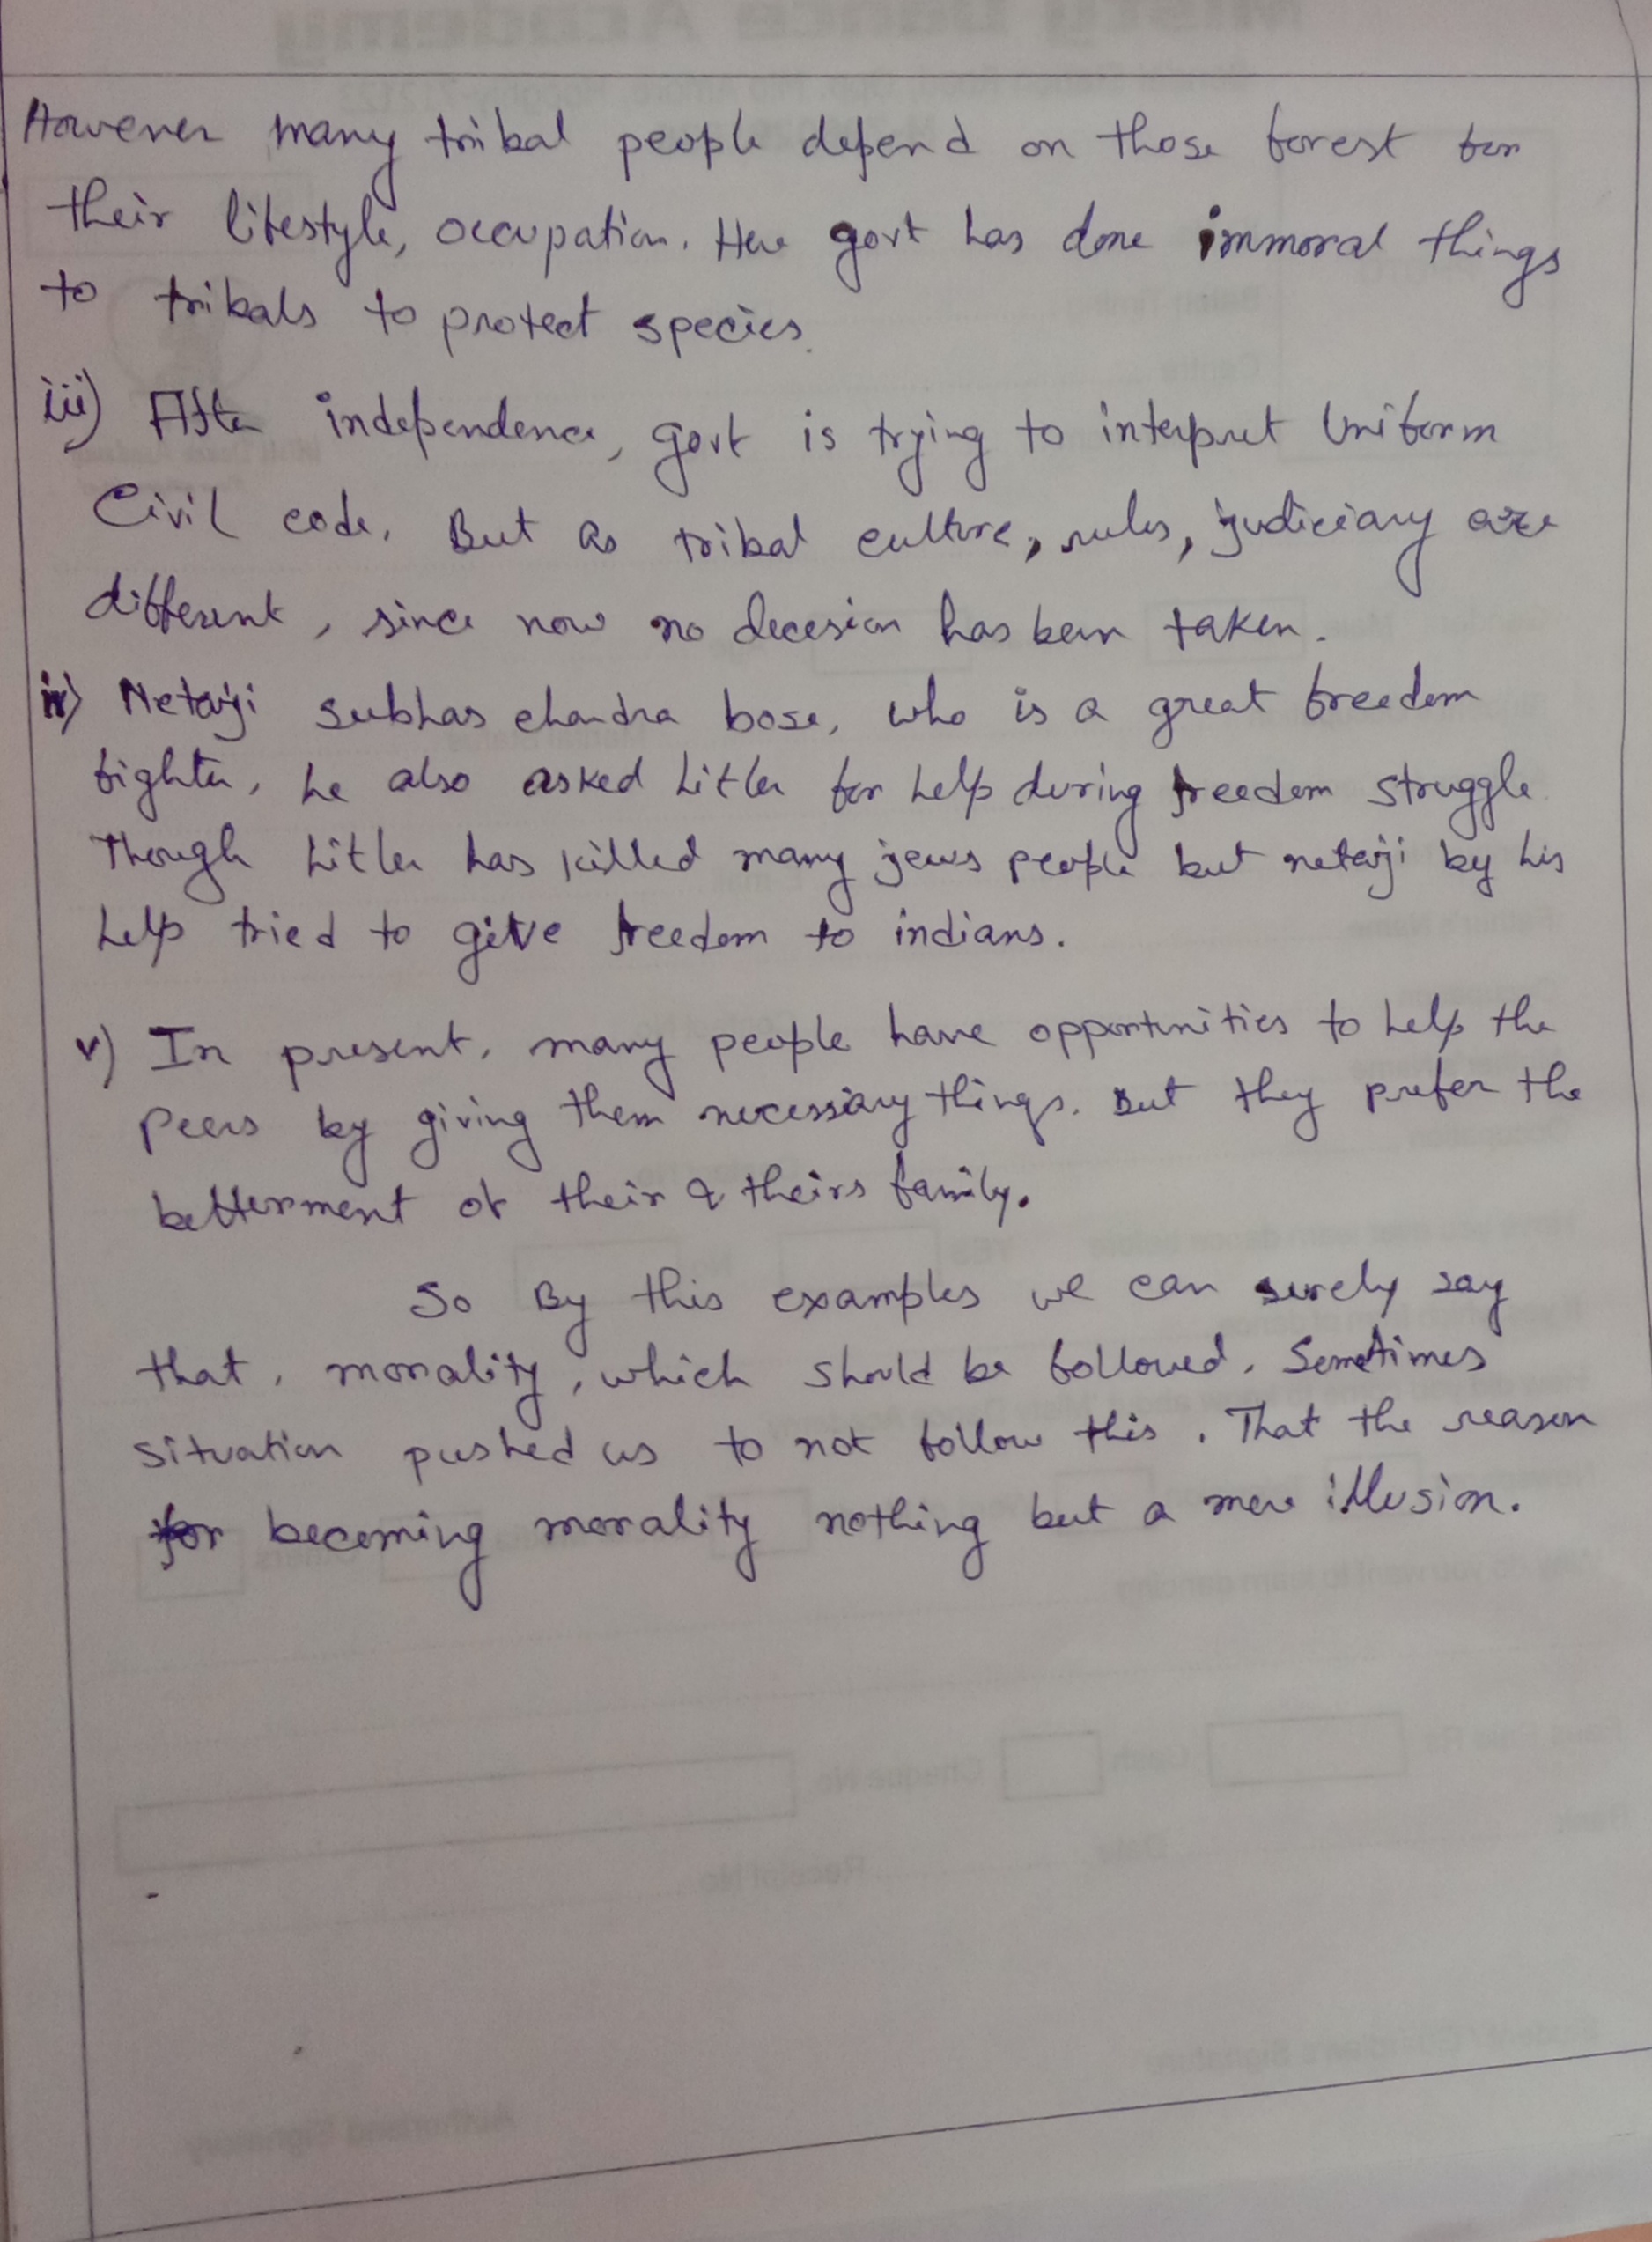 However many tribal people depend on those forest for
their lifestyle, occupation. Here govt has done immoral things
to tribals to protect species.
iii) After independence, govt is trying to interpret Uniform
Civil code. But as tribal culture, rules, judiciary are
different, since now no decesion has been taken.
iv) Netaji subhas chandra bose, who is a great freedom
fighter, he also asked hitler for help during freedom struggle
Though hitler has killed many jews people but netaji by his
help tried to give freedom to indians.
v) In present, many people have opportunities to help the
peers by giving them necessary things. But they prefer the
betterment of their & theirs family.
So By this examples we can surely say
that, morality, which should be followed. Sometimes
situation pushed us to not follow this. That the reason
for becoming morality nothing but a mere illusion.